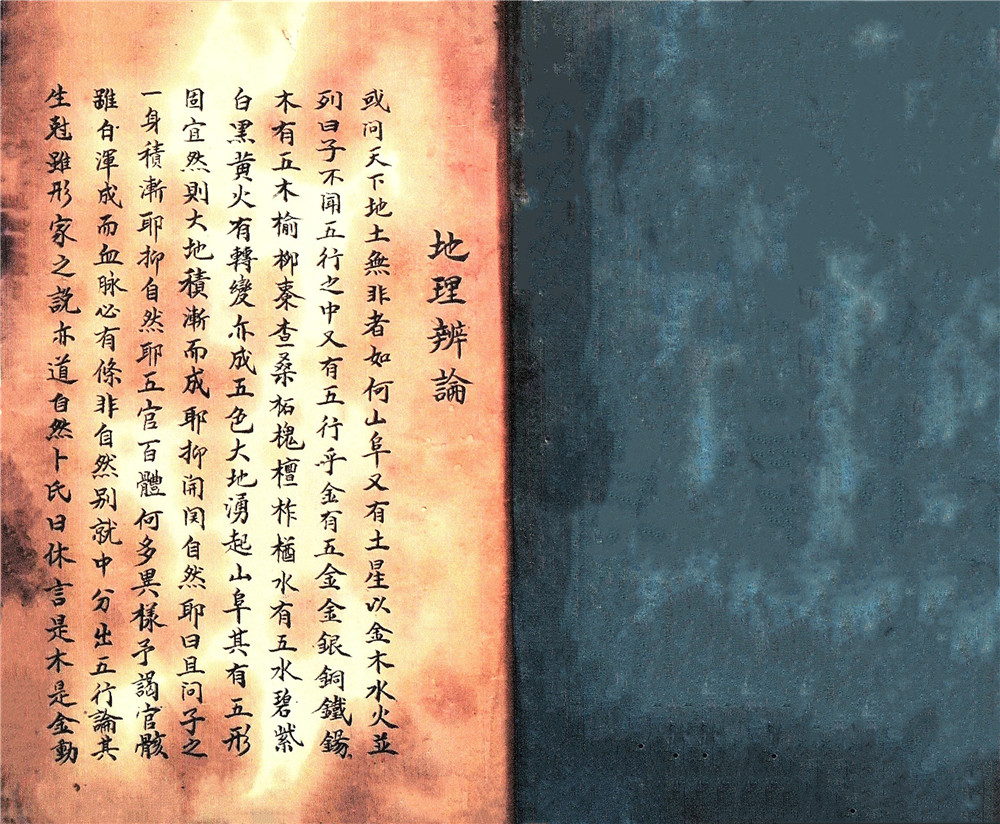 地理辨論
或問天下地土無非者如何山阜又有土星以金木水火並
列曰子不聞五行之中又有五行乎金有五金金銀銅鐵錫
木有五木榆柳棗查桑柘槐檀柞楢水有五水碧紫
白黑黃火有轉變亦成五色大地湧起山阜其有五形
固宜然則大地積漸而成耶抑開闵自然耶曰且问子之
一身積漸耶抑自然耶五官百體何多異樣予謁官骸
雖自渾成而血脉必有條非自然别就中分出五行論其
生尅雖形家之説亦道自然卜氏曰休言是木是金動